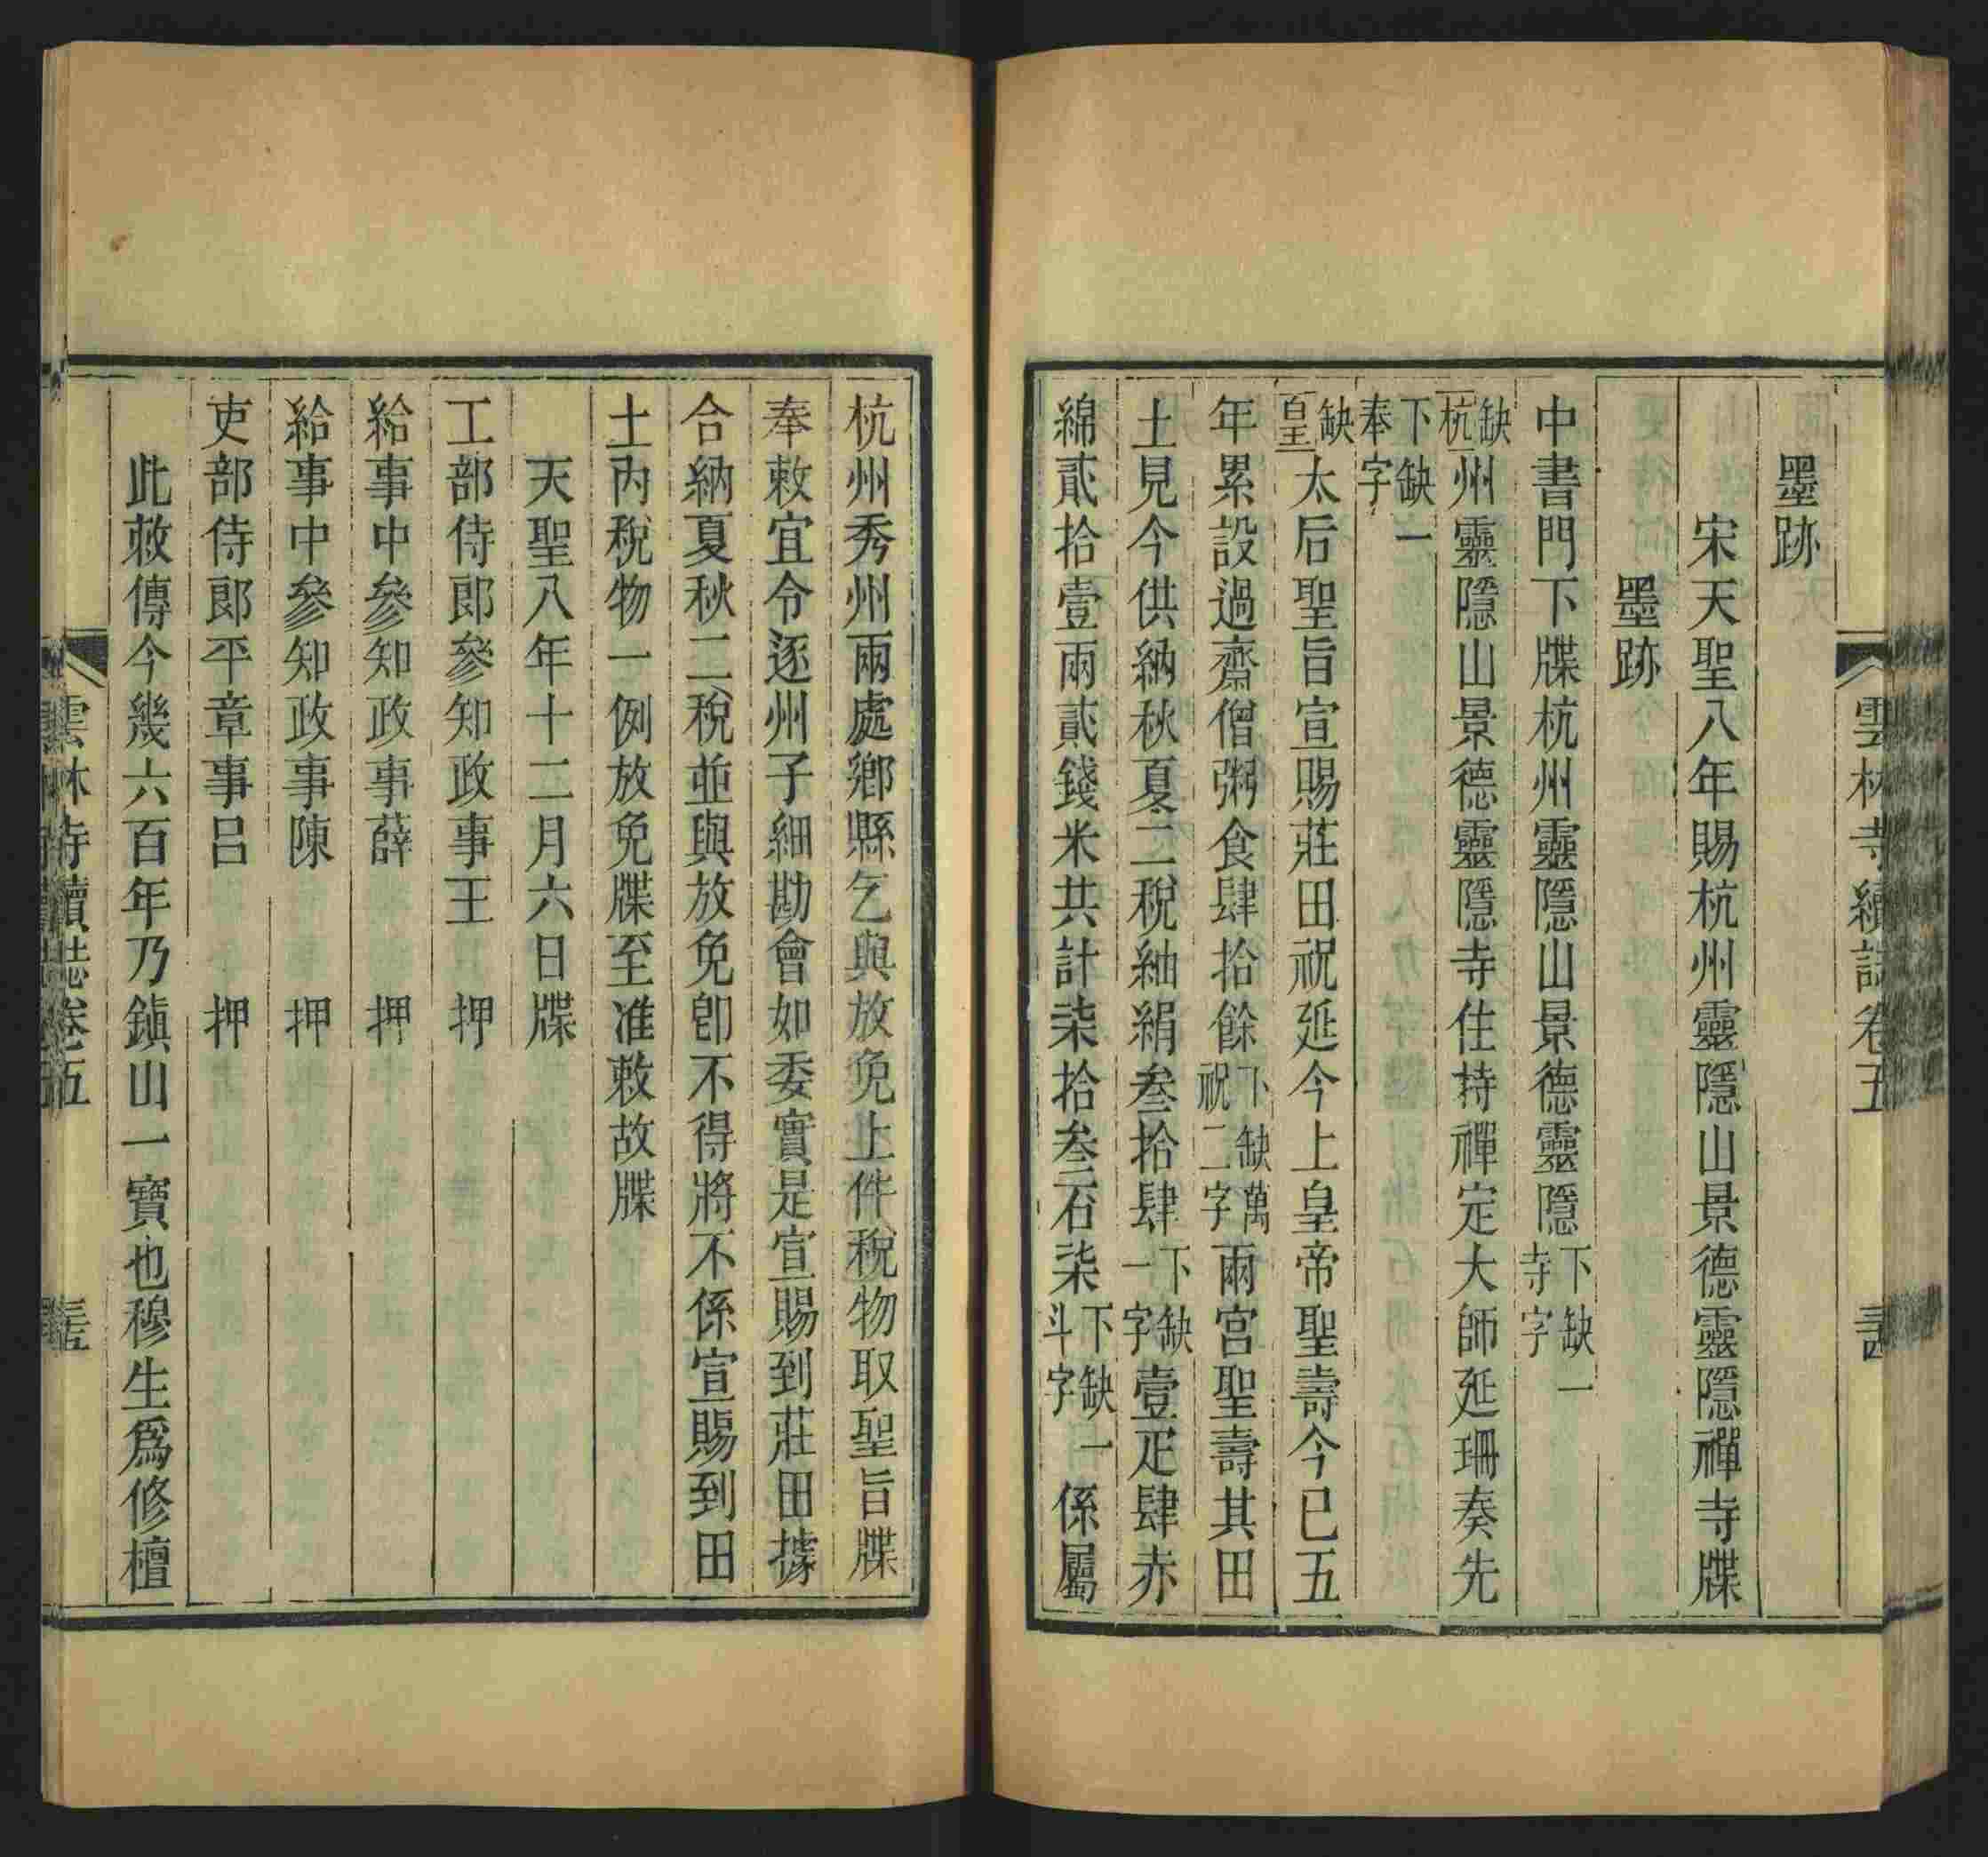 雲林寺續誌卷五
墨跡
宋天聖八年賜杭州靈隱山景德靈隱禪寺牒
墨跡
中書門下牒杭州靈隱山景德靈隱下缺一寺字
缺杭州靈隱山景德靈隱寺住持禪定大師延珊奏先
下缺一奉字
缺皇太后聖旨宣賜莊田祝延今上皇帝聖壽今已五
年累設過齋僧粥食肆拾餘下缺萬祝二字兩宮聖壽其田
土見今供納秋夏二稅紬絹叁拾肆下缺一字壹疋肆赤
綿貳拾壹兩貳錢米共計柒拾叁石柒下缺一斗字係屬
杭州秀州兩處鄉縣乞與放免上件稅物取聖旨牒
奉敕宜令逐州子細勘會如委實是宣賜到莊田據
合納夏秋二稅並與放免卽不得將不係宣賜到田
土內稅物一例放免牒至准敕故牒
天聖八年十二月六日牒
工部侍郎參知政事王 押
給事中參知政事薛 押
給事中參知政事陳 押
吏部侍郎平章事呂 押
此敕傳今幾六百年乃鎮山一寶也穆生爲修檀
雲林寺續誌卷五